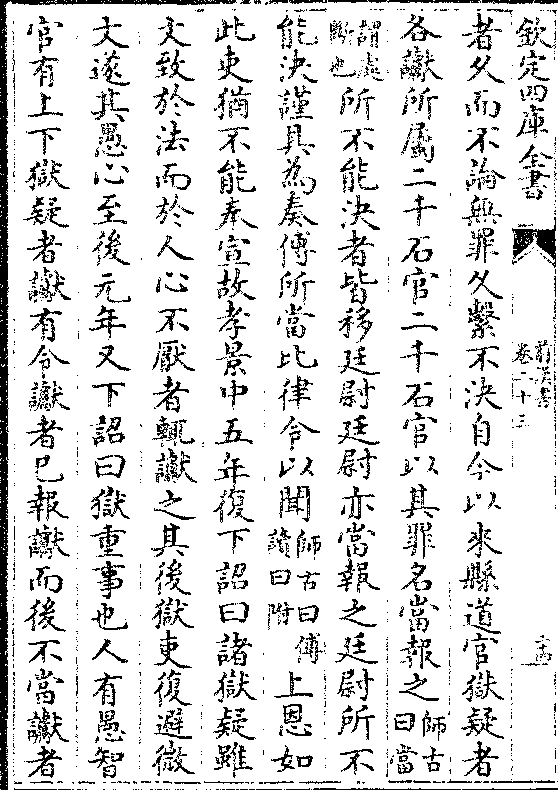 欽定四庫全書
前漢書
卷二十三
十五
者久而不論無罪久繫不決自今以來縣道官獄疑者
各讞所屬二千石官二千石官以其罪名當報之師古曰當
謂處斷也所不能決者皆移廷尉廷尉亦當報之廷尉所不
能決謹具為奏傅所當比律令以聞師古曰傅讀曰附上恩如
此吏猶不能奉宣故孝景中五年復下詔曰諸獄疑雖
文致於法而於人心不厭者輒讞之其後獄吏復避微
文遂其愚心至後元年又下詔曰獄重事也人有愚智
官有上下獄疑者讞有令讞者已報讞而後不當讞者